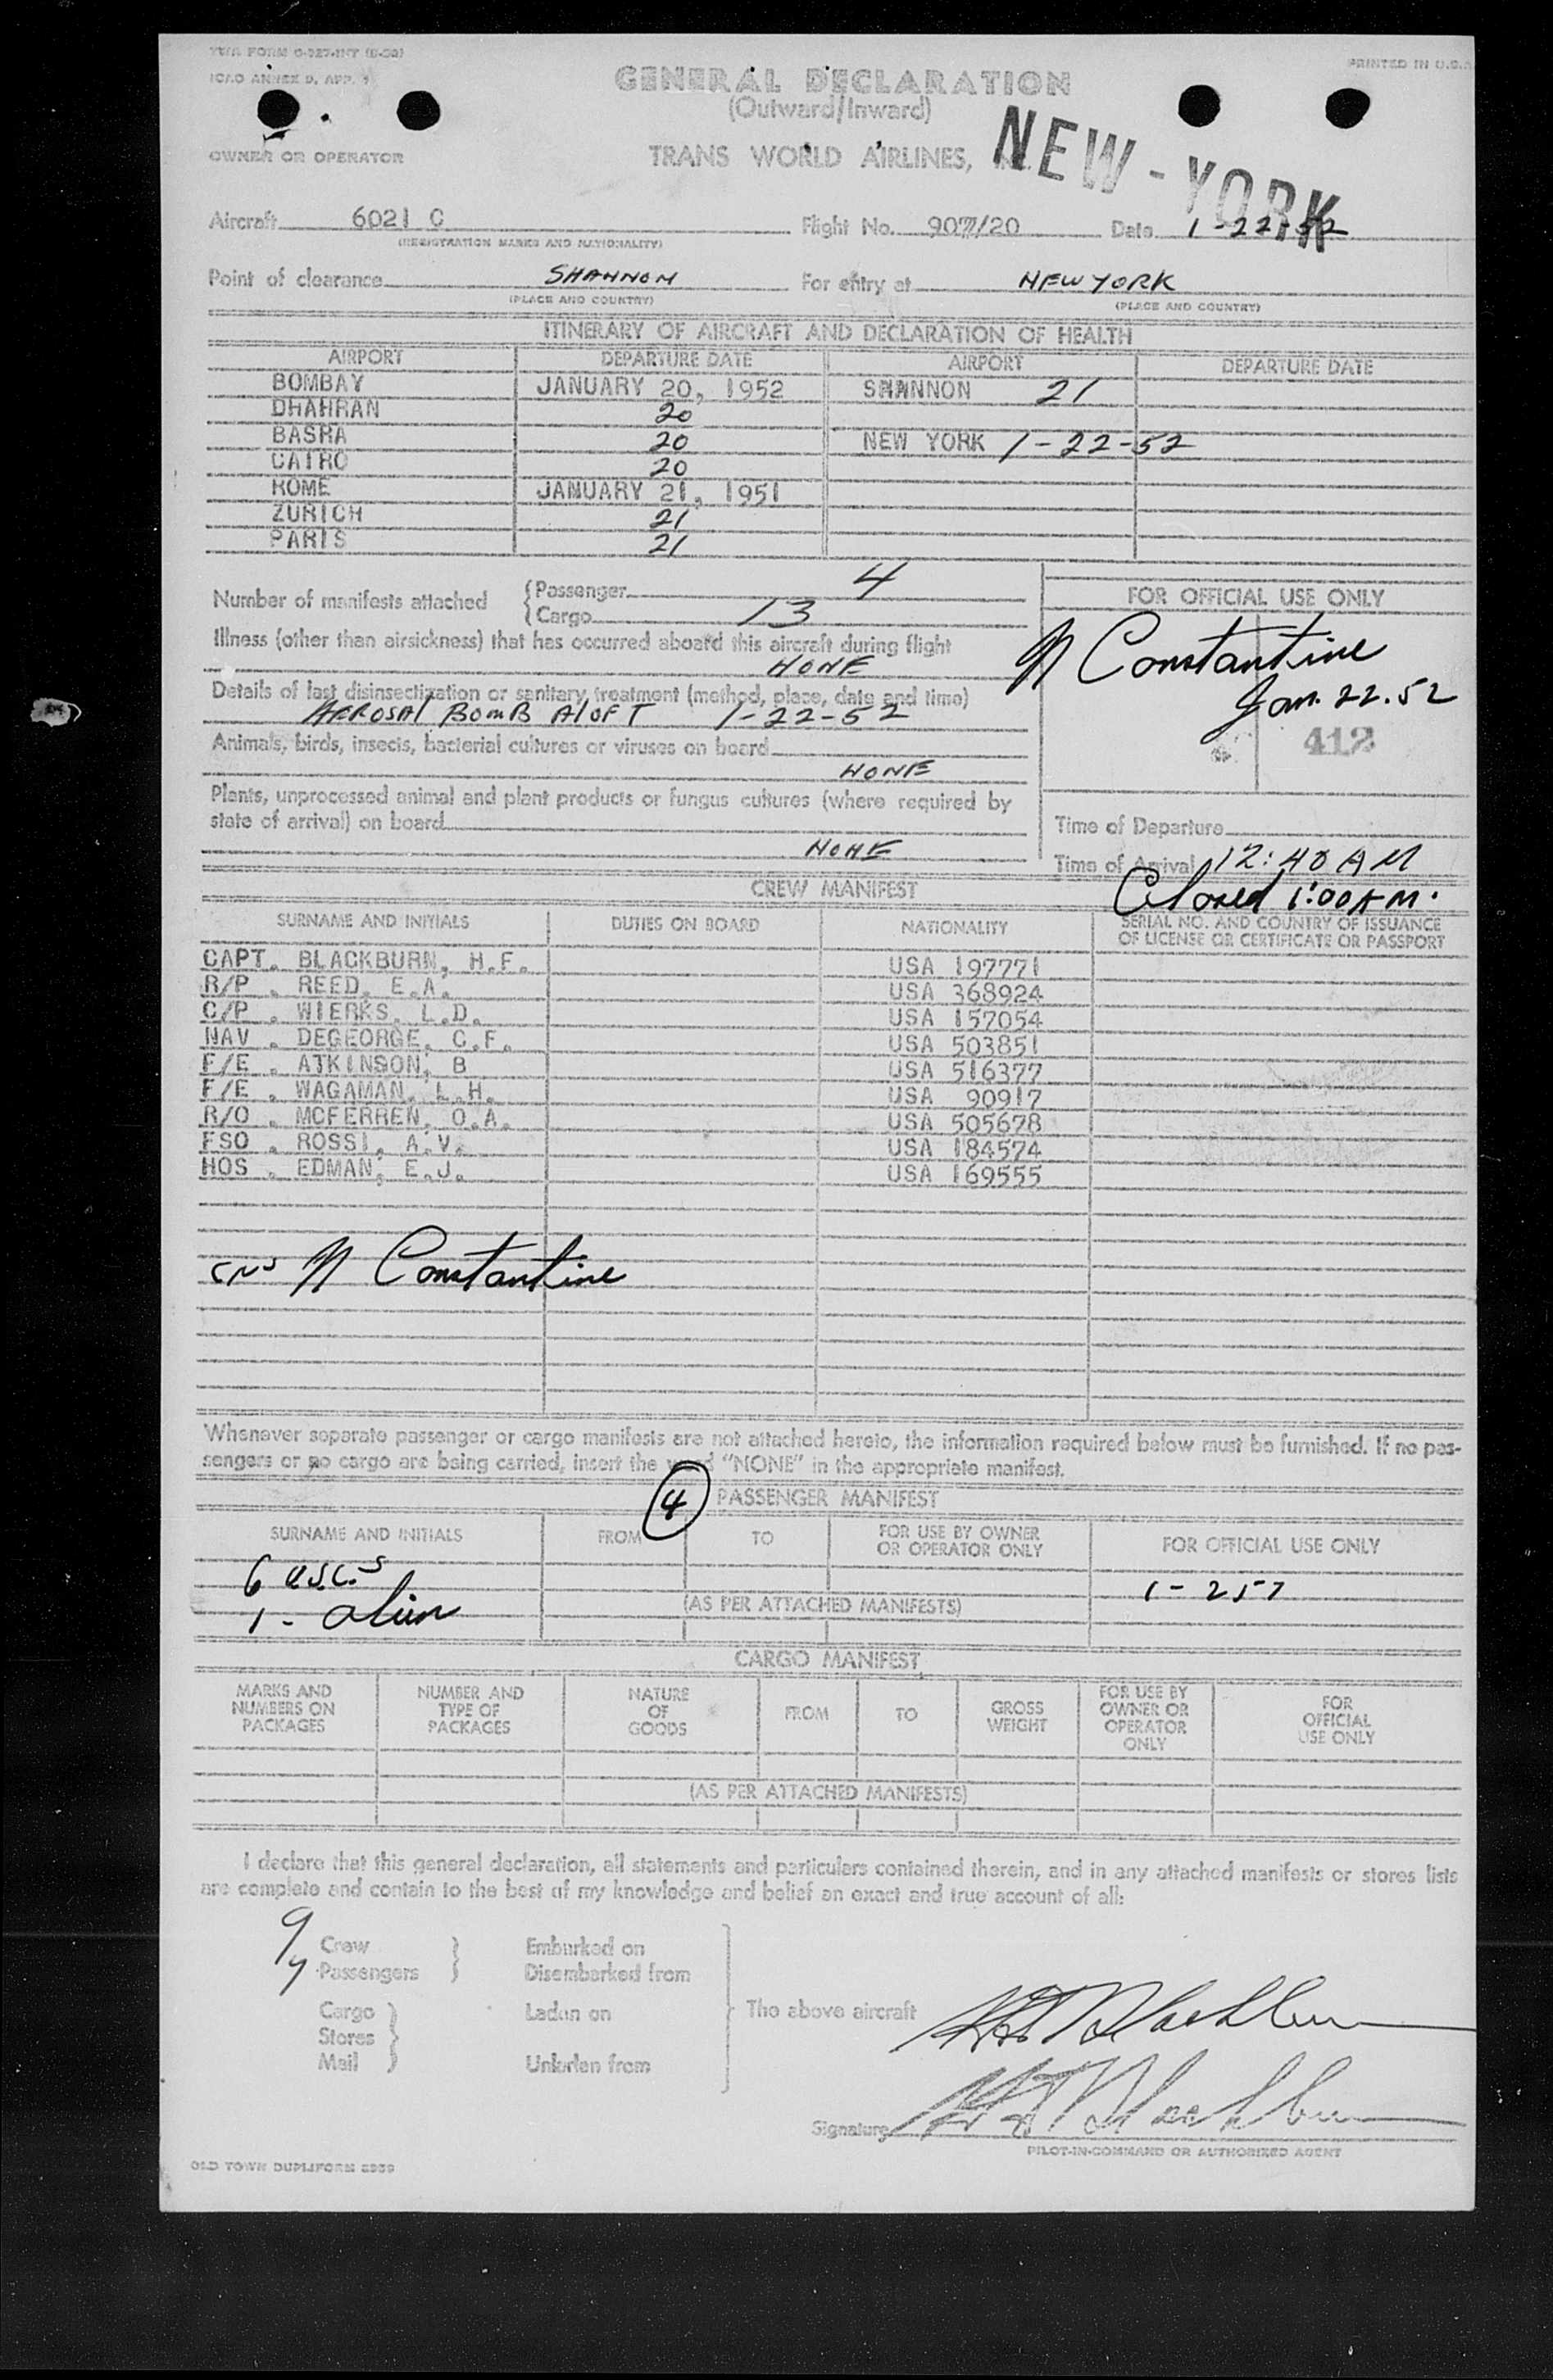 TWA FORM
ICAO ANNEX 9, APP. 1
PRINTED IN U.S.A.
GENERAL DECLARATION
(Outward/Inward)
OWNER OR OPERATOR
TRANS WORLD AIRLINES,
NEW-YORK
Aircraft 6021 C Flight No. 907/20 Date 1-22-52
(REGISTRATION MARKS AND NATIONALITY)
Point of clearance SHANNON For entry at NEW YORK
(PLACE AND COUNTRY) (PLACE AND COUNTRY)
ITINERARY OF AIRCRAFT AND DECLARATION OF HEALTH
AIRPORT DEPARTURE DATE AIRPORT DEPARTURE DATE
BOMBAY JANUARY 20, 1952 SHANNON 21
DHAHRAN 20
BASRA 20 NEW YORK 1-22-52
CAIRO 20
ROME JANUARY 21, 1951
ZURICH 21
PARIS 21
Number of manifests attached { Passenger 4
{ Cargo 13
FOR OFFICIAL USE ONLY
Illness (other than airsickness) that has occurred aboard this aircraft during flight
NONE
N Constantine
Jan. 22. 52
412
Details of last disinsectization or sanitary treatment (method, place, date and time)
AEROSAl BOMB AlOFT 1-22-52
Animals, birds, insects, bacterial cultures or viruses on board
NONE
Plants, unprocessed animal and plant products or fungus cultures (where required by
state of arrival) on board
NONE
Time of Departure
Time of Arrival 12:40 AM
Closed 1:00 AM.
CREW MANIFEST
SURNAME AND INITIALS DUTIES ON BOARD NATIONALITY SERIAL NO. AND COUNTRY OF ISSUANCE
OF LICENSE OR CERTIFICATE OR PASSPORT
CAPT. BLACKBURN, H.F. USA 197771
R/P . REED, E.A. USA 368924
C/P . WIERKS, L.D. USA 157054
NAV . DEGEORGE, C.F. USA 503851
F/E . ATKINSON, B USA 516377
F/E . WAGAMAN, L.H. USA 90917
R/O . MCFERREN, O.A. USA 505678
FSO . ROSSI, A.V. USA 184574
HOS . EDMAN, E.J. USA 169555
N Constantine
Whenever separate passenger or cargo manifests are not attached hereto, the information required below must be furnished. If no pas-
sengers or no cargo are being carried, insert the word "NONE" in the appropriate manifest.
4 PASSENGER MANIFEST
SURNAME AND INITIALS FROM TO FOR USE BY OWNER
OR OPERATOR ONLY FOR OFFICIAL USE ONLY
6 USC.S
1 - alien
1 - 257
(AS PER ATTACHED MANIFESTS)
CARGO MANIFEST
MARKS AND
NUMBERS ON
PACKAGES
NUMBER AND
TYPE OF
PACKAGES
NATURE
OF
GOODS
FROM
TO
GROSS
WEIGHT
FOR USE BY
OWNER OR
OPERATOR
ONLY
FOR
OFFICIAL
USE ONLY
(AS PER ATTACHED MANIFESTS)
I declare that this general declaration, all statements and particulars contained therein, and in any attached manifests or stores lists
are complete and contain to the best of my knowledge and belief an exact and true account of all:
9 Crew } Embarked on
7 Passengers } Disembarked from
Cargo } Laden on
Stores
Mail } Unladen from
The above aircraft H F Blackburn
Signature H F Blackburn
PILOT-IN-COMMAND OR AUTHORIZED AGENT
OLD TOWN DUPLIFORM 5959